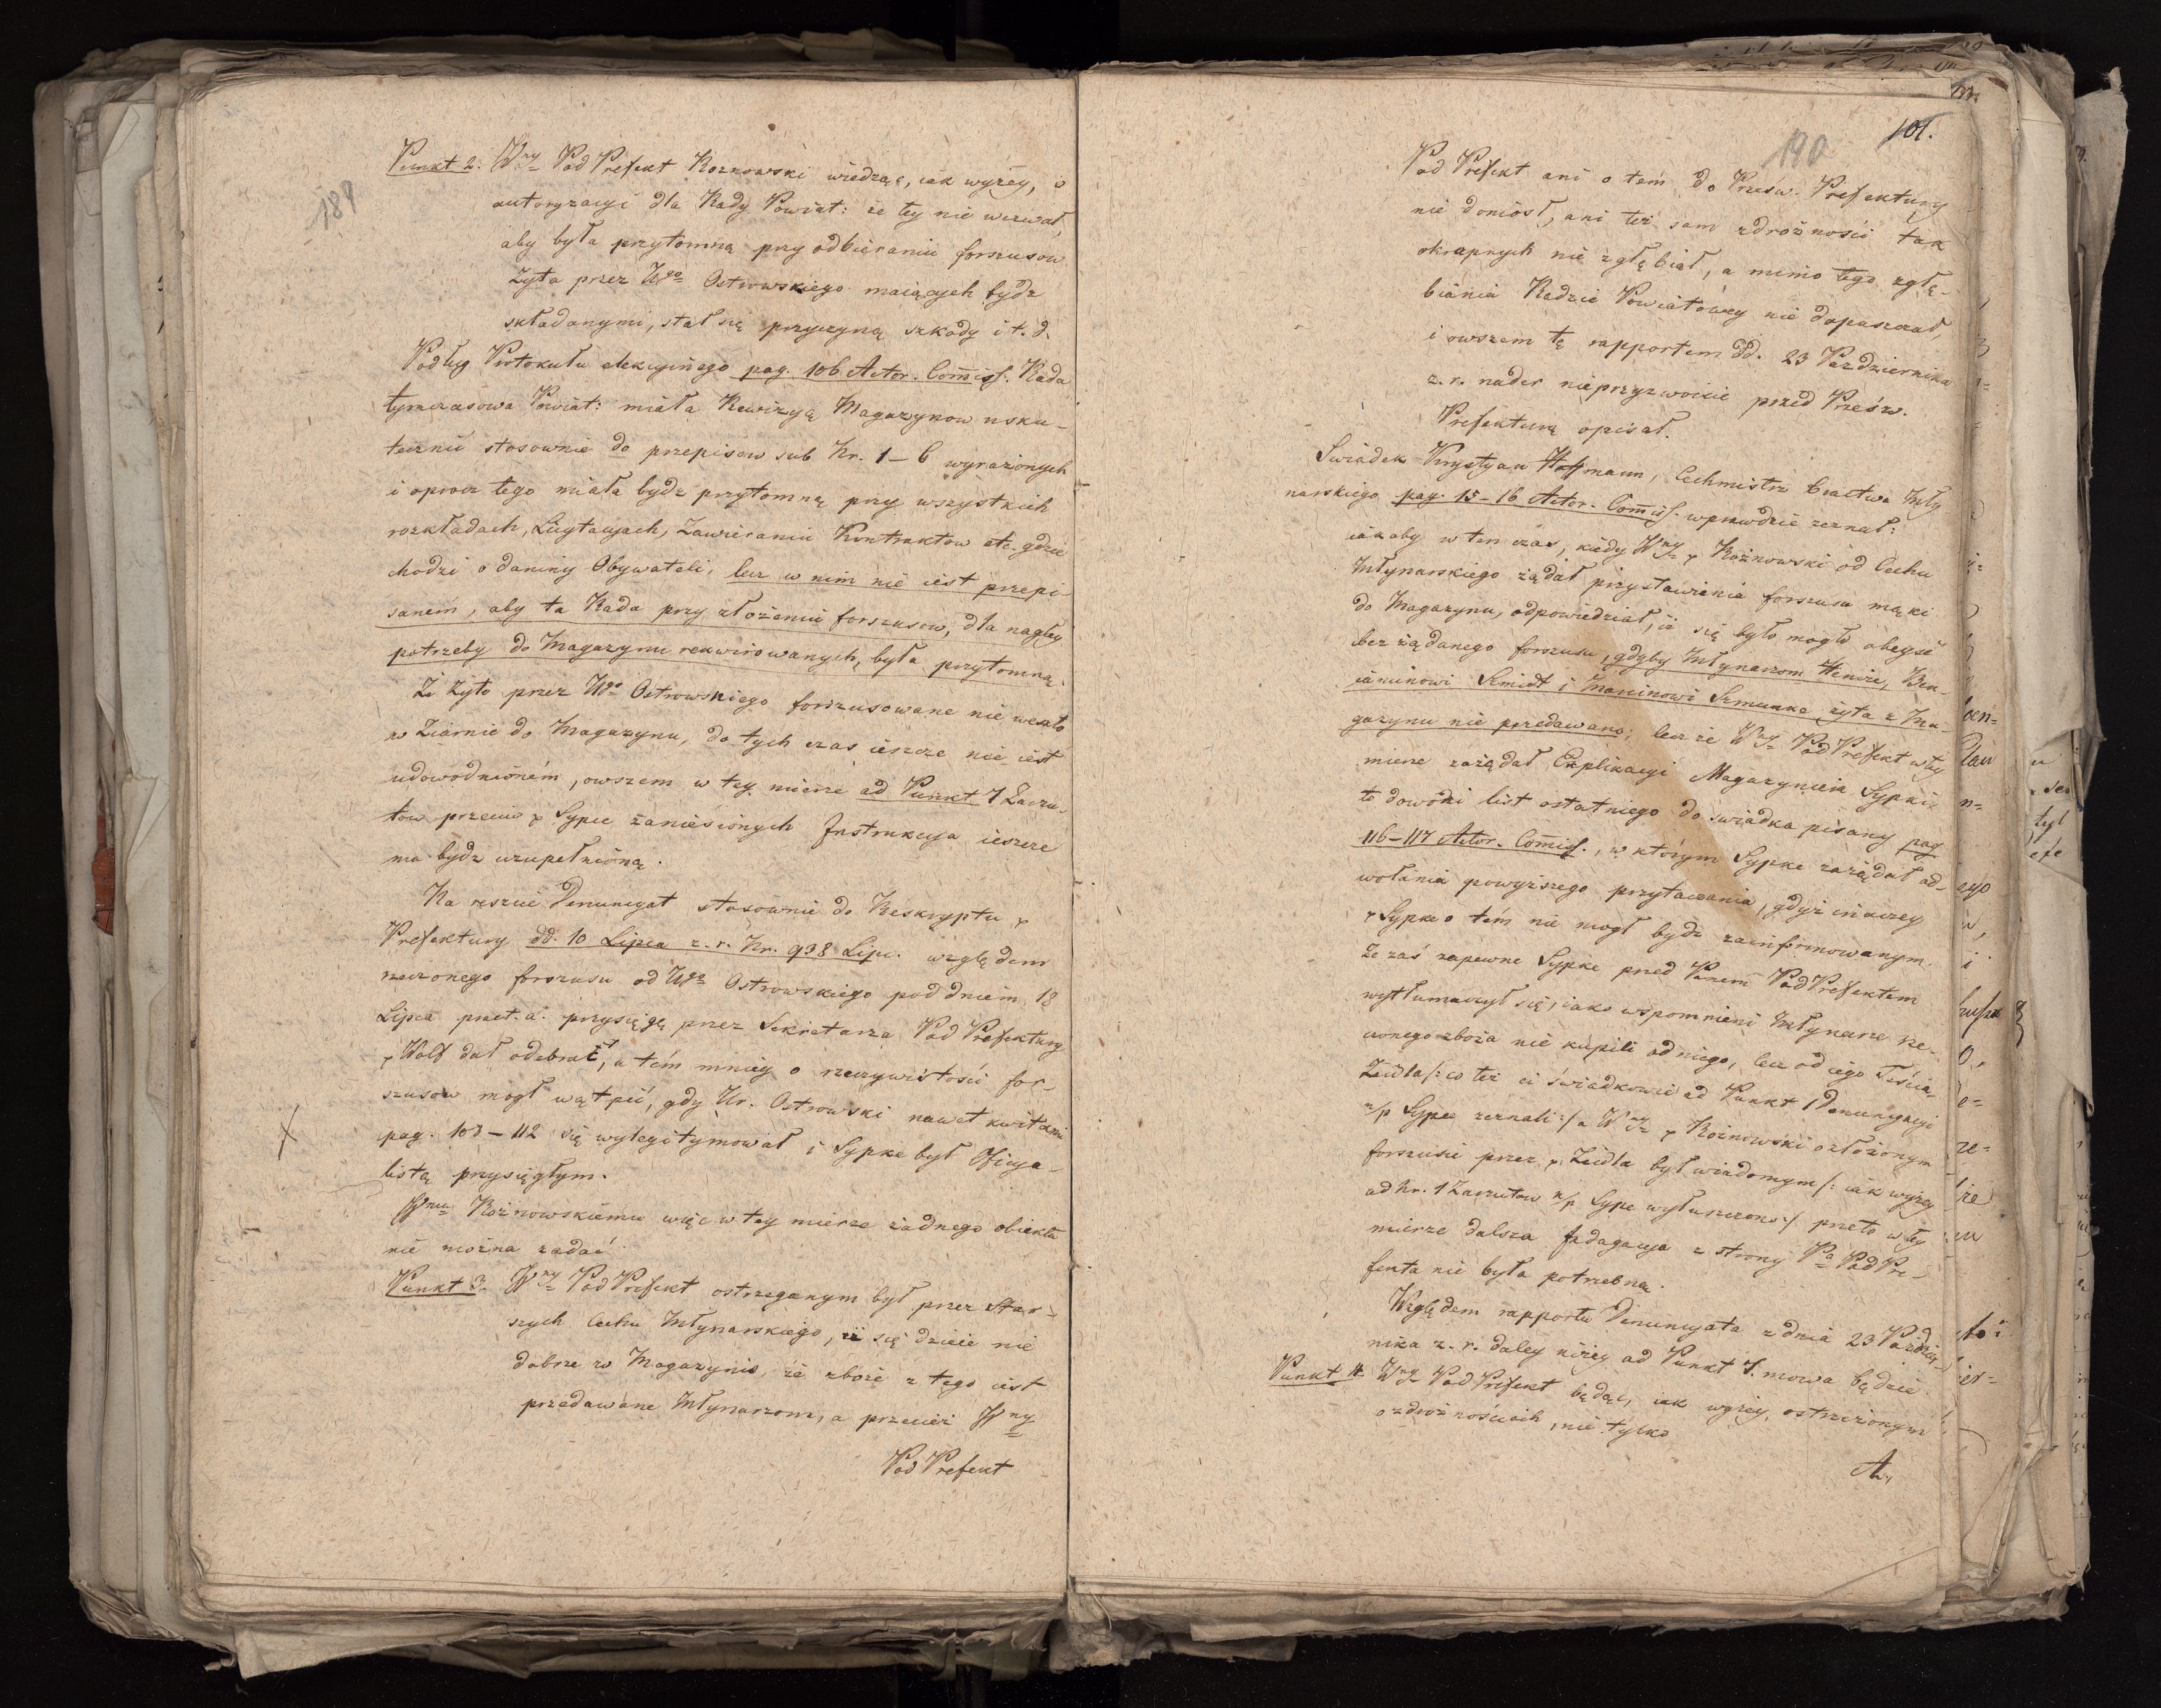 189
Punkt 2. Wny Pod Prefekt Roznowski wiedząc, iak wyzey, o
autoryzacyi dla Rady Powiat: że tey nie wezwał,
aby była przytomną przy odbieraniu forszusow
Zyta przez Wgo Ostrowskiego maiących bydz
składanymi, stał się przyczyną szkody i t. d.
Podług Protokułu elekcyinego pag. 106 Actor. Commiss. Rada
tymczasowa Powiat: miała Rewizyą Magazynow usku-
tecznić stosownie do przepisow sub Nr. 1–6 wyrażonych
i oprocz tego miała bydz przytomną przy wszystkich
rozkładach, Licytacyach, Zawieraniu Kontraktow etc. gdzie
chodzi o daniny Obywateli, lecz w nim nie iest przepi-
sanem, aby ta Rada przy złożeniu forszusow, dla nagłey
potrzeby do Magazynu rekwirowanych, była przytomną.
Ze Zyto przez Wgo Ostrowskiego forszusowane nie weszło
w Ziarnie do Magazynu, do tych czas ieszcze nie iest
udowodnioném, owszem w tey mierze ad Punkt 7 Zarzu-
tow przeciw p Sypce zaniesionych Instrukcya ieszcze
ma bydz uzupełnioną.
Na reszcie Denuncyat stosownie do Reskryptu p
Prefektury dd. 10 Lipca z. r. Nr. 938 Lipc. względem
rzeczonego forszusu od Wgo Ostrowskiego pod dniem 18
Lipca praet. a. przysięgę przez Sekretarza Pod Prefektury
p Wolf dał odebrać, a tém mniey o rzeczywistości for-
szusow mogł wątpić, gdy Ur. Ostrowski nawet kwitami
pag. 108–112 się wylegitymował i Sypke był Oficya-
listą przysięgłym.
Wmu Rożnowskiemu więc w tey mierze żadnego obiektu
nie można zadać
Punkt 3. Wny Pod Prefekt ostrzeganym był przez Star-
szych Cechu Młynarskiego, iż się dzieie nie
dobrze w Magazynie, że zboże z tego iest
przedawane Młynarzom, a przecież Wny
Pod Prefekt
190
101.
Pod Prefekt ani o tém do Prześw. Prefektury
nie doniosł, ani też sam zdrożności tak
okropnych nie zgłębiał, a mimo tego zgłę-
biania Radzie Powiatowey nie dopuszczał,
i owszem tę rapportem dd. 23 Pazdziernika
z. r. nader nieprzyzwoicie przed Prześw.
Prefekturą opisał.
Swiadek Krystyan Hoffmann, Cechmistrz bractwa Mły-
narskiego pag. 15–16 Actor. Commiss. wprawdzie zeznał:
iakoby w ten czas, kiedy Wny p Rożnowski od Cechu
Młynarskiego żądał przystawienia forszusu mąki
do Magazynu, odpowiedział, iż się było mogło obeyść
bez żądanego forszusu, gdyby Młynarzom Henize, Ben-
iaminowi Szmidt i Marcinowi Szmunka żyta z Ma-
gazynu nie przedawano; lecz że Wny Pod Prefekt w tey
mierze zażądał Explikacyi Magazyniera Sypki
to dowodzi list ostatniego do swiadka pisany pag
116–117 Actor. Commiss., w którym Sypke zażądał od-
wołania powyższego przytaczania, gdyż inaczey
p Sypke o tém nie mogł bydz zainformowanym.
Ze zaś zapewne Sypke przed Panem Pod Prefektem
wytłumaczył się, iako wspomnieni Młynarze rze-
czonego zboża nie kupili od niego, lecz od iego teścia
Zeidla /: co też ci świadkowie ad Punkt 1 Denuncyacyi
n/p Sypce zeznali :/ a Wny p Rożnowski o złożonym
forszusie przez p. Zeidla był wiadomym /: iak wyzey
ad Nr. 1 Zarzutow n/p Sypce wyłuszczono :/ przeto w tey
mierze dalsza Indagacya z strony Pa Pod Pre-
fekta nie była potrzebną.
Względem rapportu Denuncyata z dnia 23 Paździer-
nika z. r. daley niżey ad Punkt 7. mowa będzie.
Punkt 4. Wny Pod Prefekt będąc, iak wyzey, ostrzeżonym
o zdrożnościach, nie tylko